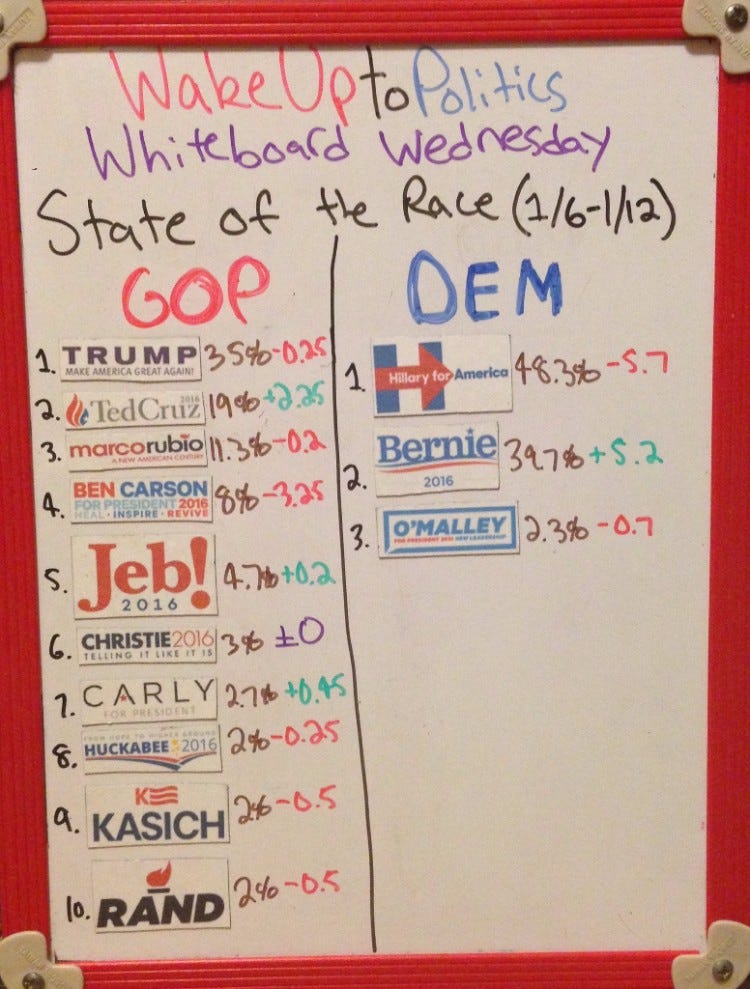 WakeUp to Politics
Whiteboard Wednesday
State of the Race (1/6-1/12)
GOP
1. TRUMP 35% -0.25
MAKE AMERICA GREAT AGAIN!
2. Ted Cruz 2016 19% +2.25
3. marco rubio 11.3% -0.2
A NEW AMERICAN CENTURY
4. BEN CARSON 8% -3.25
FOR PRESIDENT 2016
HEAL · INSPIRE · REVIVE
5. Jeb! 4.7% +0.2
2016
6. CHRISTIE 2016 3% ±0
TELLING IT LIKE IT IS
7. CARLY 2.7% +0.45
FOR PRESIDENT
FROM HOPE TO HIGHER GROUND
8. HUCKABEE 2016 2% -0.25
K
9. KASICH 2% -0.5
10. RAND 2% -0.5
DEM
1. H Hillary for America 48.3% -5.7
2. Bernie 39.7% +5.2
2016
3. O'MALLEY 2.3% -0.7
FOR PRESIDENT 2016 NEW LEADERSHIP